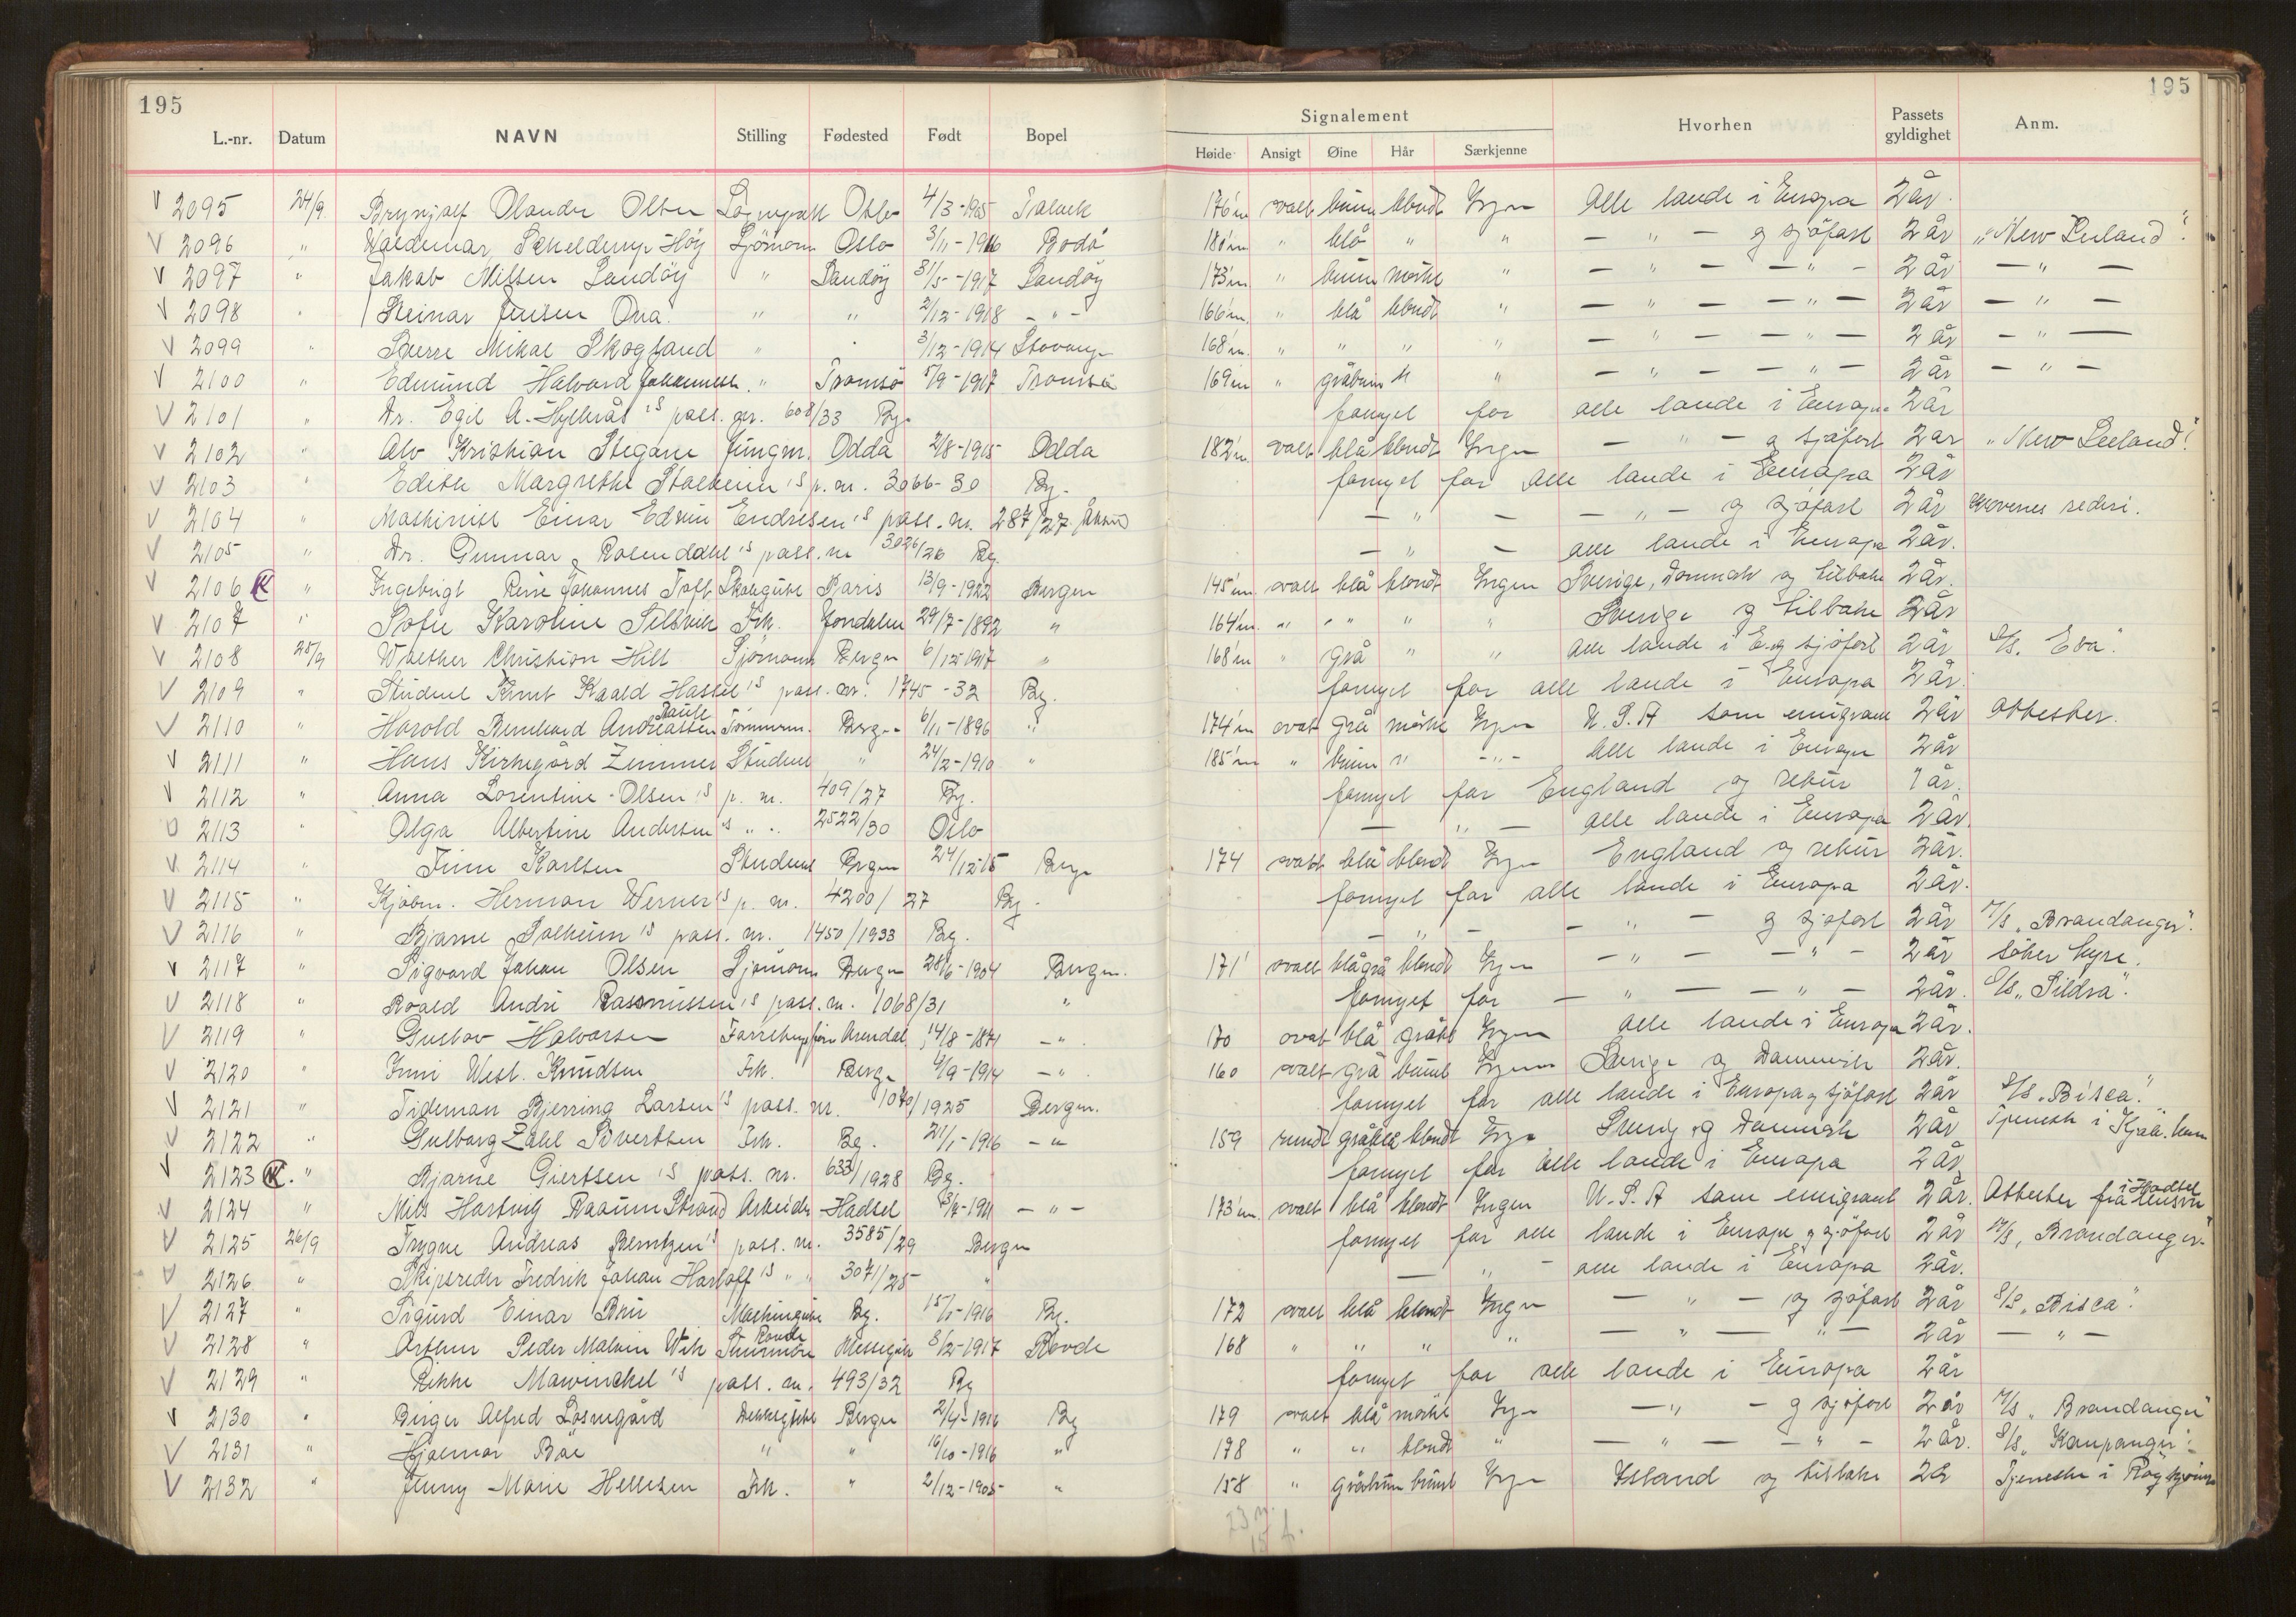 195
195
L.-nr. Datum NAVN Stilling Fødested Født Bopel
Signalement
Høide Ansigt Øine Hår Særkjenne Hvorhen Passets gyldighet Anm.
V 2095 24/9. Brynjolf Olander Olsen Oslo 4/3-1905 176 m ovalt brune blondt Ingen Alle lande i Europa 2 år.
V 2096 " Waldemar Schelderup Höy Sjömann Oslo 3/11-1916 Bodö 180 m " blå " " — " — og sjöfart 2 år "New Seeland".
V 2097 " Jakob Nilsen Sandöy " Sandöy 31/5-1917 Sandöy 173 m " brune mörkt " — " — — " — 2 år — " —
V 2098 " Steinar Jensen Ona. " " 2/12-1918 - " - 166 m. " blå blondt " — " — — " — 2 år — " —
V 2099 " Sverre Mikal Skogland " " 3/12-1914 Stavanger 168 m. " " " " — " — — " — 2 år — " —
V 2100 " Edmund Halvard Johannesen. " Tromsö 5/9-1917 Tromsö 169 m " gråbrune " " — " — — " — 2 år — " —
V 2101 " Dr. Egil A. Hylleraas 's pass. nr. 608/33 Bg. fornyet for alle lande i Europa 2 år
V 2102 " Alv Kristian Stegane Jungm. Odda 2/8-1915 Odda 182 m. ovalt blå blondt Ingen — " — og sjöfart 2 år "New Seeland".
V 2103 " Edith Margrethe Stalheim's p. nr. 3066-30 Bg. fornyet for alle lande i Europa 2 år
V 2104 " Maskinist Einar Edvin Endresen's pass. nr. 287/27. — " — — " — og sjöfart 2 år rederi.
V 2105 " Dr. Gunnar Rosendahl's pass. nr 3026/26 Bg. — " — alle lande i Europa 2 år.
V 2106 K " Ingebrigt Reine Johannes Toft Skolegutt Paris 13/9-1922 Bergen 145 m. ovalt blå blondt Ingen Sverige, Danmark og tilbake 2 år.
V 2107 " Sofie Karoline Frk. Jondalen 29/7-1892 " 164 m. " " " " Sverige og tilbake 2 år
V 2108 25/9 Walther Christian Hill Sjömann Bergen 6/12-1917 " 168 m " grå " " alle lande i E. og sjöfart 2 år S/s. "Eva".
V 2109 " Student Knut Hassel's pass. nr. 1745-32 Bg. fornyet for alle lande i Europa 2 år.
V 2110 " Harold Bernhard Andreassen Tömmerm. Bergen 6/11-1896 " 174 m ovalt grå mörkt Ingen U.S.A som emigrant 2 år Attester.
V 2111 " Hans Kirkegård Zimmer Student " 24/2-1910 " 185 m " brune " - " - Alle lande i Europa 2 år
V 2112 " Anna Lorentine Olsen's p. nr. 409/27 Bg. fornyet for England og retur 1 år.
V 2113 " Olga Albertine Andersen's " " 2522/30 Oslo — " — alle lande i Europa 2 år.
V 2114 " Finn Karlsen Student Bergen 24/12-15 Bergen 174 ovalt blå blondt Ingen England og retur 2 år.
V 2115 " Kjøbm. Herman Werner's p. nr. 4200/27 Bg. fornyet for alle lande i Europa 2 år.
V 2116 " Bjarne Solheim's pass. nr. 1450/1933 Bg. — " — — " — og sjöfart 2 år M/s "Brandanger".
V 2117 " Sigvard Johan Olsen Sjömann Bergen 28/6-1904 Bergen. 171 ovalt blågrå blondt Ingen — " — — " — 2 år söker hyre.
V 2118 " Roald André Rasmussen's pass. nr. 1068/31 " fornyet for — " — — " — 2 år. S/s "Sildra".
V 2119 " Gustav Halvorsen Arendal 14/8-1871 — " 170 ovalt blå gråbl Ingen alle lande i Europa 2 år.
V 2120 " Inni West. Knudsen Frk. Bergen 4/9-1914 — " 160 ovalt grå brunt Ingen Sverige og Danmark 2 år.
V 2121 " Tideman Bjerring Larsen's pass. nr. 1079/1925 Bergen. fornyet for alle lande i Europa og sjöfart 2 år S/s "Bisca".
V 2122 " Gulborg Zahl Sivertsen Frk. Bg. 21/1-1916 — " 159 rundt gråblå blondt Ingen Sverig og Danmark 2 år Tjeneste i Kjøb.havn
V 2123 K. " Bjarne Giertsen's pass. nr. 633/1928 Bg. fornyet for alle lande i Europa 2 år
V 2124 " Nils Hartvig Raaum Strand Arbeider Hadsel — " — 173 m. ovalt blå blondt Ingen U.S.A som emigrant 2 år. Attester fra i Hadsel
V 2125 26/9 Trygve Andreas Berntzen's pass. nr. 3585/29 Bergen fornyet for alle lande i Europa og sjöfart 2 år M/s "Brandanger".
V 2126 " Skipsreder Fredrik Johan Harloff's " " 3071/25 " — " — alle lande i Europa 2 år.
V 2127 " Sigurd Einar Bru Maskingutt Bg. 15/5-1916 Bg. 172 ovalt blå blondt Ingen — " — og sjöfart 2 år S/s "Bisca".
V 2128 " Arthur Peder Malvin Wik Rovde Sunnmöre Messegutt 8/2-1917 Rovde 168 " " " " — " — " — 2 år — " —
V 2129 " Rikke Mowinckel's pass. nr. 493/32 Bg fornyet for alle lande i Europa 2 år
V 2130 " Birger Alfred Lösnegård Dekksgutt Bergen 2/4-1916 Bg 179 ovalt blå mörkt Ingen — " — og sjöfart 2 år M/s "Brandanger"
V 2131 " Hjalmar Boe " " 16/10-1916 " 178 " " blondt " — " — — " — 2 år. S/s "Kaupanger".
V 2132 " Jenny Marie Hellesen Frk. " 2/12-1905 " 158 " gråbrune brunt Ingen Island og tilbake 2 år Tjeneste i
23 m.
15 f.